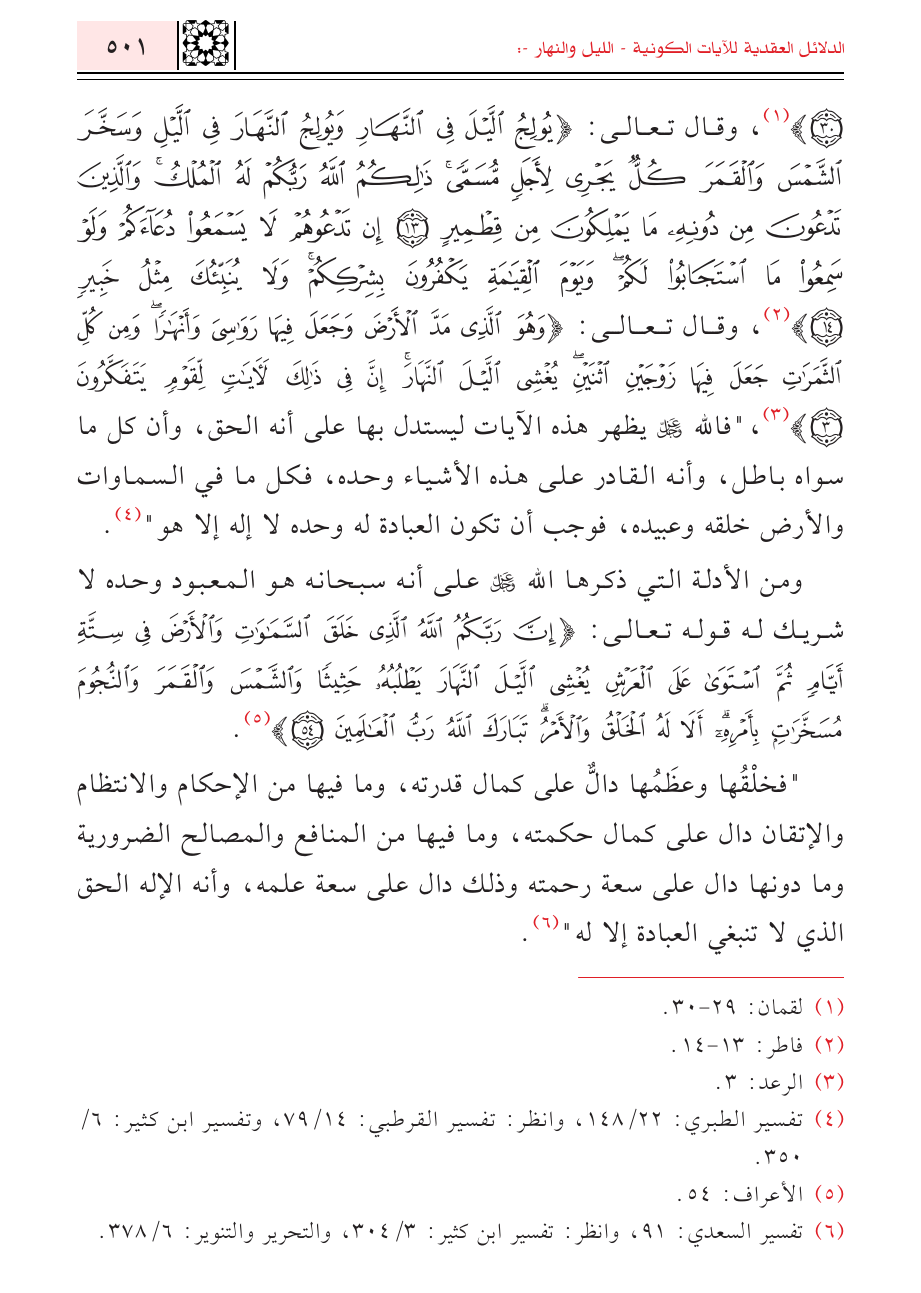 الدلائل العقدية للآيات الكونية - الليل والنهار -: ٥٠١
﴿٣٠﴾﴾(١)، وقال تعالى: ﴿يُولِجُ ٱلَّيْلَ فِى ٱلنَّهَارِ وَيُولِجُ ٱلنَّهَارَ فِى ٱلَّيْلِ وَسَخَّرَ
ٱلشَّمْسَ وَٱلْقَمَرَ كُلٌّ يَجْرِى لِأَجَلٍ مُّسَمًّى ۚ ذَٰلِكُمُ ٱللَّهُ رَبُّكُمْ لَهُ ٱلْمُلْكُ ۚ وَٱلَّذِينَ
تَدْعُونَ مِن دُونِهِۦ مَا يَمْلِكُونَ مِن قِطْمِيرٍ ﴿١٣﴾ إِن تَدْعُوهُمْ لَا يَسْمَعُوا۟ دُعَآءَكُمْ وَلَوْ
سَمِعُوا۟ مَا ٱسْتَجَابُوا۟ لَكُمْ ۖ وَيَوْمَ ٱلْقِيَٰمَةِ يَكْفُرُونَ بِشِرْكِكُمْ ۚ وَلَا يُنَبِّئُكَ مِثْلُ خَبِيرٍ
﴿١٤﴾﴾(٢)، وقال تعالى: ﴿وَهُوَ ٱلَّذِى مَدَّ ٱلْأَرْضَ وَجَعَلَ فِيهَا رَوَٰسِىَ وَأَنْهَٰرًا ۖ وَمِن كُلِّ
ٱلثَّمَرَٰتِ جَعَلَ فِيهَا زَوْجَيْنِ ٱثْنَيْنِ ۖ يُغْشِى ٱلَّيْلَ ٱلنَّهَارَ ۚ إِنَّ فِى ذَٰلِكَ لَءَايَٰتٍ لِّقَوْمٍ يَتَفَكَّرُونَ
﴿٣﴾﴾(٣)، "فالله ﷻ يظهر هذه الآيات ليستدل بها على أنه الحق، وأن كل ما
سواه باطل، وأنه القادر على هذه الأشياء وحده، فكل ما في السماوات
والأرض خلقه وعبيده، فوجب أن تكون العبادة له وحده لا إله إلا هو"(٤).
ومن الأدلة التي ذكرها الله ﷻ على أنه سبحانه هو المعبود وحده لا
شريك له قوله تعالى: ﴿إِنَّ رَبَّكُمُ ٱللَّهُ ٱلَّذِى خَلَقَ ٱلسَّمَٰوَٰتِ وَٱلْأَرْضَ فِى سِتَّةِ
أَيَّامٍ ثُمَّ ٱسْتَوَىٰ عَلَى ٱلْعَرْشِ يُغْشِى ٱلَّيْلَ ٱلنَّهَارَ يَطْلُبُهُۥ حَثِيثًا وَٱلشَّمْسَ وَٱلْقَمَرَ وَٱلنُّجُومَ
مُسَخَّرَٰتٍۭ بِأَمْرِهِۦٓ ۗ أَلَا لَهُ ٱلْخَلْقُ وَٱلْأَمْرُ ۗ تَبَارَكَ ٱللَّهُ رَبُّ ٱلْعَٰلَمِينَ ﴿٥٤﴾﴾(٥).
"فخلْقُها وعظَمُها دالٌّ على كمال قدرته، وما فيها من الإحكام والانتظام
والإتقان دال على كمال حكمته، وما فيها من المنافع والمصالح الضرورية
وما دونها دال على سعة رحمته وذلك دال على سعة علمه، وأنه الإله الحق
الذي لا تنبغي العبادة إلا له"(٦).
(١) لقمان: ٢٩-٣٠.
(٢) فاطر: ١٣-١٤.
(٣) الرعد: ٣.
(٤) تفسير الطبري: ١٤٨/٢٢، وانظر: تفسير القرطبي: ٧٩/١٤، وتفسير ابن كثير: ٦/
٣٥٠.
(٥) الأعراف: ٥٤.
(٦) تفسير السعدي: ٩١، وانظر: تفسير ابن كثير: ٣٠٤/٣، والتحرير والتنوير: ٣٧٨/٦.